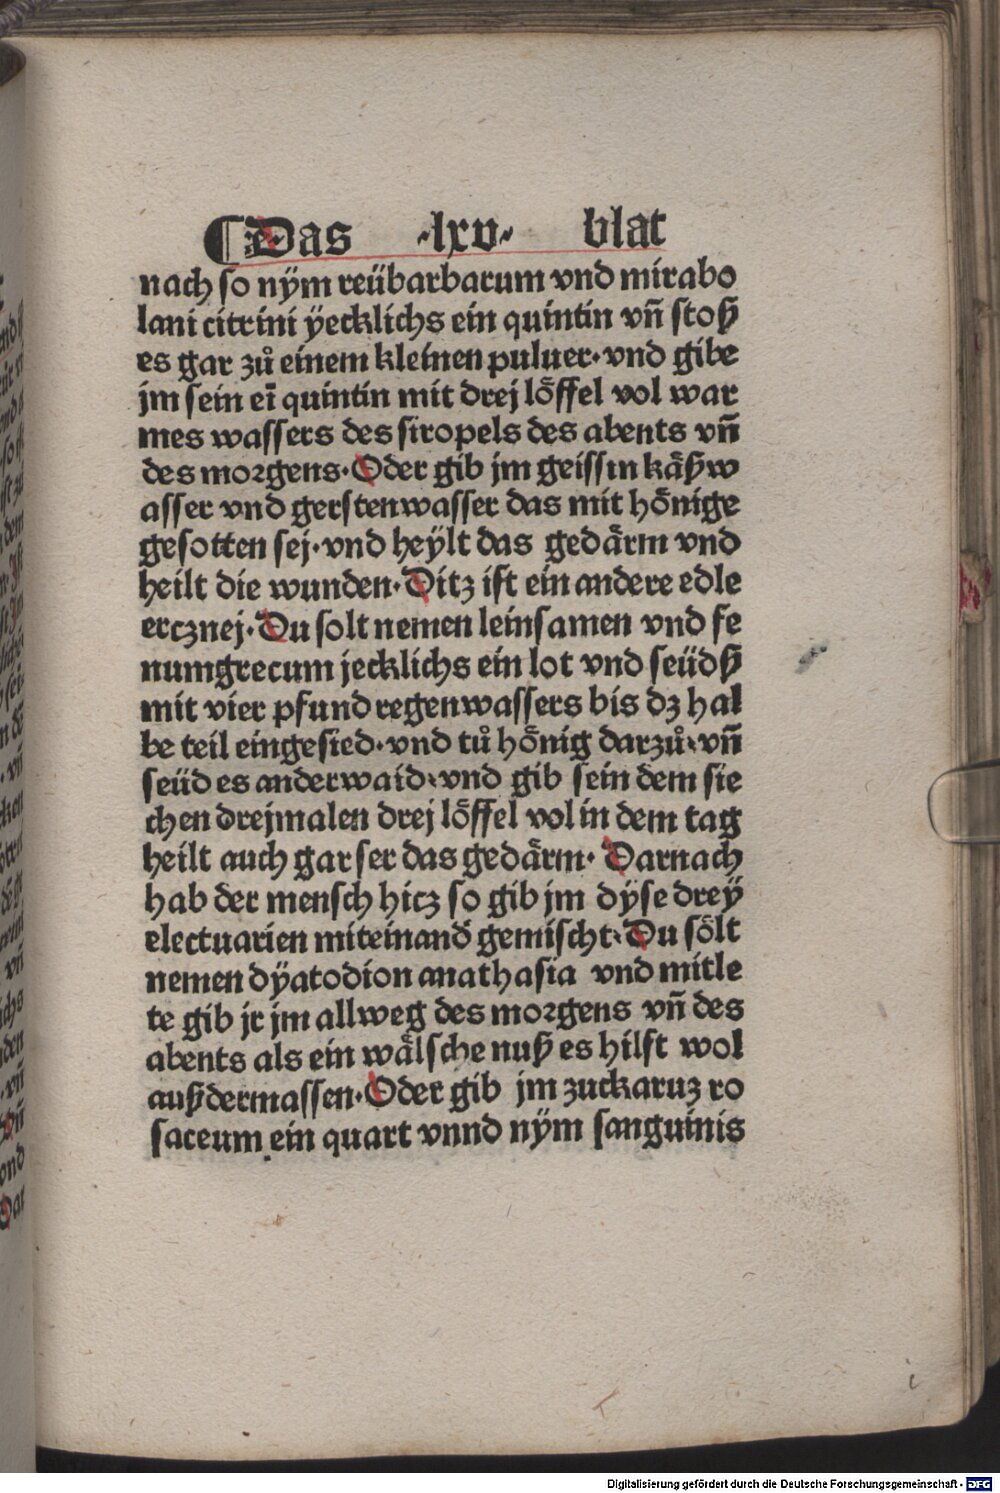 ¶ Das ·lxv· blat
nach so nÿm reübarbarum vnd mirabo
lani citrini ÿecklichs ein quintin vñ stoß
es gar zů einem kleinen puluer· vnd gibe
jm sein eī quintin mit drej löffel vol war
mes wassers des siropels des abents vñ
des moꝛgens· Oder gib jm geissin käßw
asser vnd gerstenwasser das mit hönige
gesotten sej· vnd heÿlt das gedärm vnd
heilt die wunden· Ditz ist ein andere edle
ercznej· Du solt nemen leinsamen vnd fe
numgrecum jecklichs ein lot vnd seüdß
mit vier pfund regenwassers bis dz hal
be teil eingesied· vnd tů hönig darzů· vñ
seüd es anderwaid· vnd gib sein dem sie
chen drejmalen drej löffel vol in dem tag
heilt auch gar ser das gedärm· Darnach
hab der mensch hicz so gib jm dÿse dreÿ
electuarien miteinand̕ gemischt· Du sölt
nemen dÿatodion anathasia vnd mitle
te gib jr jm allweg des moꝛgens vñ des
abents als ein wälsche nuß es hilft wol
außdermassen· Oder gib jm zuckaruz ro
saceum ein quart vnnd nÿm sanguinis
Digitalisierung gefördert durch die Deutsche Forschungsgemeinschaft - DFG